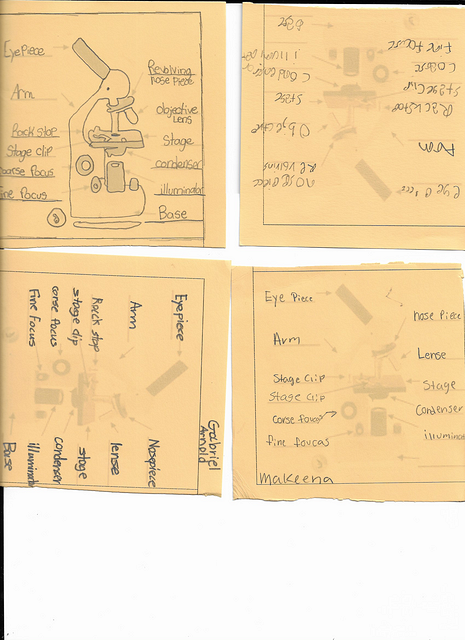 EyePiece
Arm
Rack stop
Stage clip
Coarse focus
Fine Focus
Revolving
nose piece
objective
Lens
Stage
condenser
illuminator
Base
Base
Fine focuse
Stage
Objective
Revolving
nosepiece
Arm
Eyepiece
Arm
Rack stop
stage clip
corse focus
Fine Focus
Gabriel
Arnold
Nosepiece
lense
stage
condenser
illuminat
Base
Eye Piece
Arm
Stage Clip
Stage Clip
corse foucas
fine foucas
nose Piece
Lense
Stage
Condenser
illuminat
Makeena